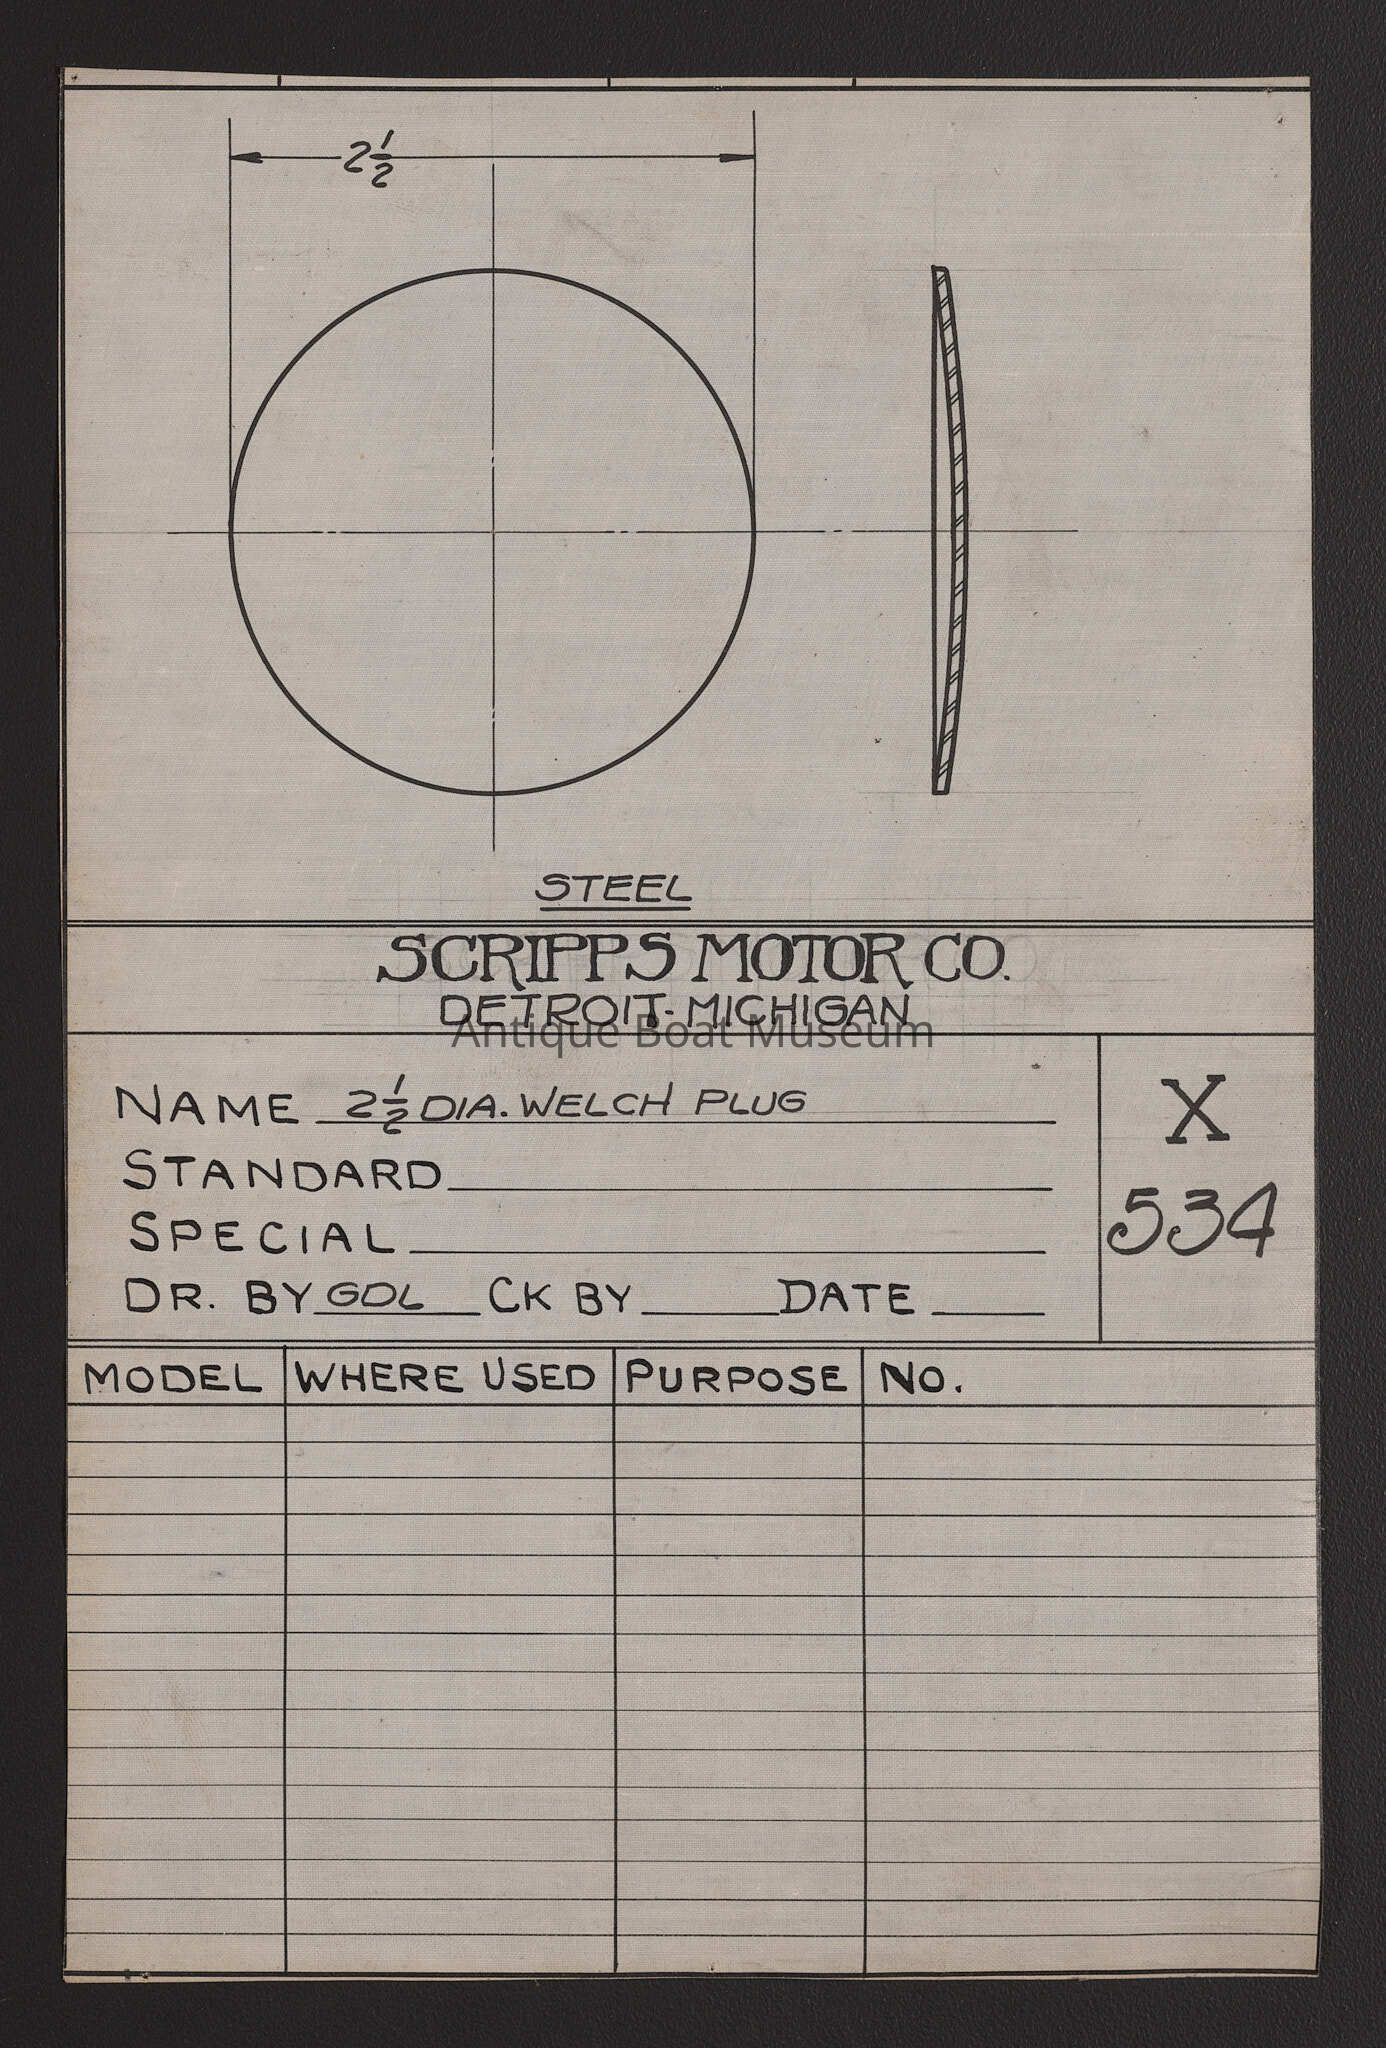 2 1/2
STEEL
SCRIPPS MOTOR CO.
DETROIT-MICHIGAN
Antique Boat Museum
NAME 2 1/2 DIA. WELCH PLUG
STANDARD
SPECIAL
DR. BY GDL CK BY DATE
X
534
MODEL WHERE USED PURPOSE NO.